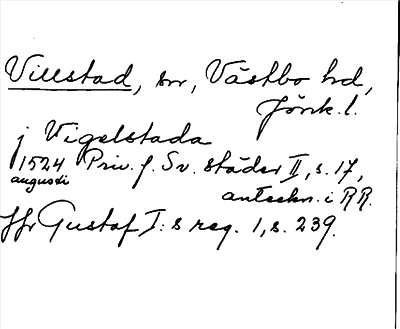 Villstad, sn, Västbo hd,
Jönk. l.
j Vigelstada
1524 Priv. f. Sv. städer II, s. 17,
augusti
anteckn. i RR.
Jfr Gustaf I:s reg. 1, s. 239.